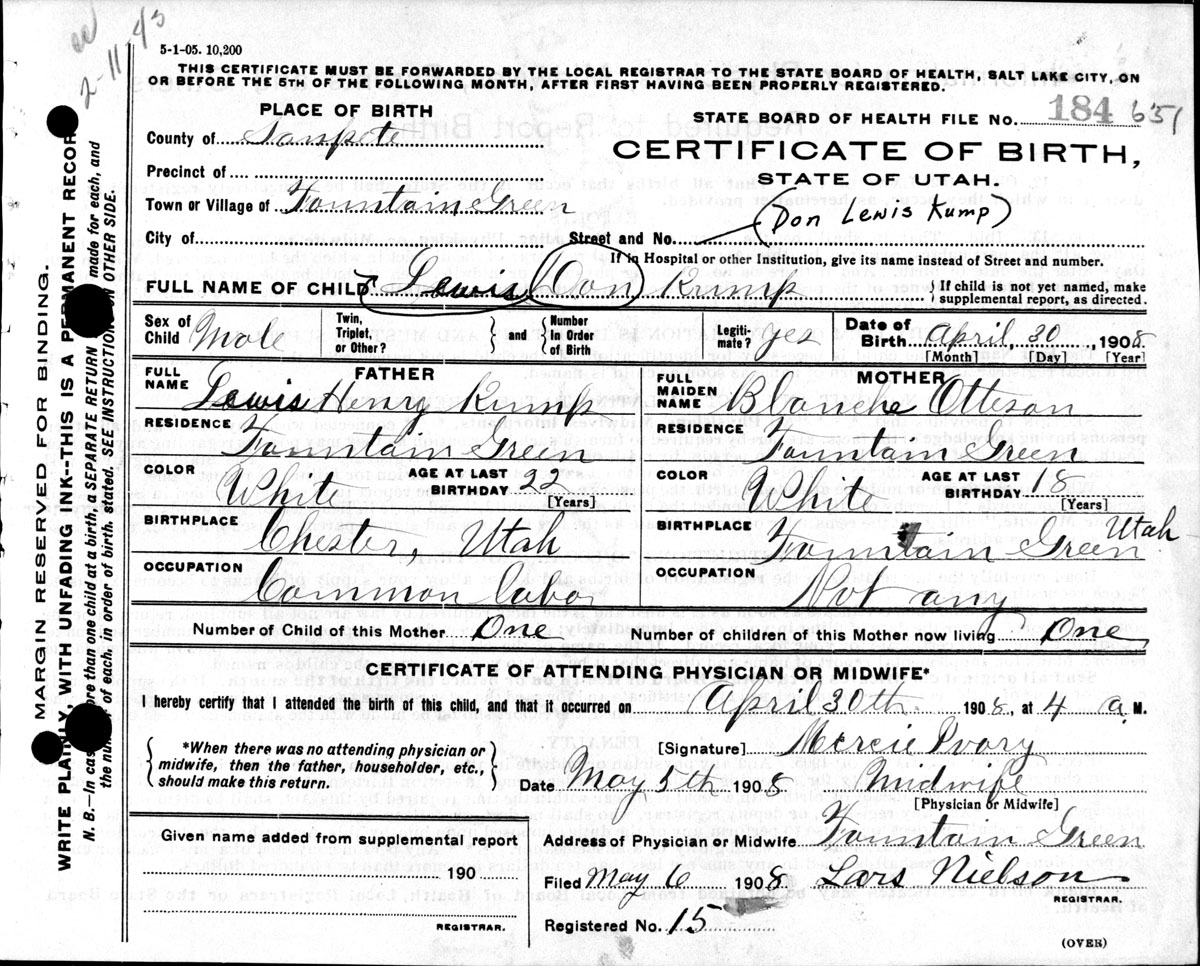 ee
2-11-43
5-1-05. 10,200
THIS CERTIFICATE MUST BE FORWARDED BY THE LOCAL REGISTRAR TO THE STATE BOARD OF HEALTH, SALT LAKE CITY, ON
OR BEFORE THE 5TH OF THE FOLLOWING MONTH, AFTER FIRST HAVING BEEN PROPERLY REGISTERED.
PLACE OF BIRTH
STATE BOARD OF HEALTH FILE No. 184 651
County of Sanpete
CERTIFICATE OF BIRTH,
Precinct of
STATE OF UTAH.
Town or Village of Fountain Green
(Don Lewis Kump)
City of Street and No.
If in Hospital or other Institution, give its name instead of Street and number.
FULL NAME OF CHILD (Lewis (Don) Kump } If child is not yet named, make supplemental report, as directed.
Sex of Child Male Twin, Triplet, or Other? } and { Number In Order of Birth Legiti- mate? yes Date of Birth April, 30, 1908
[Month] [Day] [Year]
FATHER
FULL NAME Lewis Henry Kump
RESIDENCE Fountain Green
COLOR White AGE AT LAST BIRTHDAY 22 [Years]
BIRTHPLACE Chester, Utah
OCCUPATION Common Labor
MOTHER
FULL MAIDEN NAME Blanche Otteson
RESIDENCE Fountain Green
COLOR White AGE AT LAST BIRTHDAY 18 [Years]
BIRTHPLACE Fountain Green Utah
OCCUPATION Not any
Number of Child of this Mother One Number of children of this Mother now living One
CERTIFICATE OF ATTENDING PHYSICIAN OR MIDWIFE*
I hereby certify that I attended the birth of this child, and that it occurred on April 30th. 1908, at 4 a. M.
{ *When there was no attending physician or midwife, then the father, householder, etc., should make this return. }
[Signature] Mercie Ivory
Date May 5th 1908 Midwife
[Physician or Midwife]
Given name added from supplemental report
190
REGISTRAR.
Address of Physician or Midwife Fountain Green
Filed May 6 1908 Lars Nielson
REGISTRAR.
Registered No. 15
(OVER)
MARGIN RESERVED FOR BINDING.
WRITE PLAINLY, WITH UNFADING INK--THIS IS A PERMANENT RECOR
N. B.—In cas ore than one child at a birth, a SEPARATE RETURN made for each, and
the nu of each, in order of birth, stated. SEE INSTRUCTION ON OTHER SIDE.